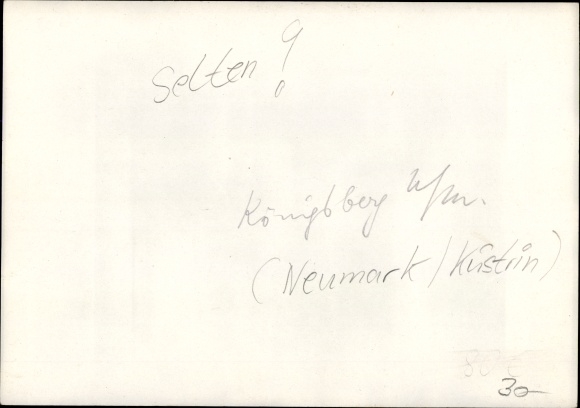 Selten!
Königsberg N/m.
(Neumark/Küstrin)
30